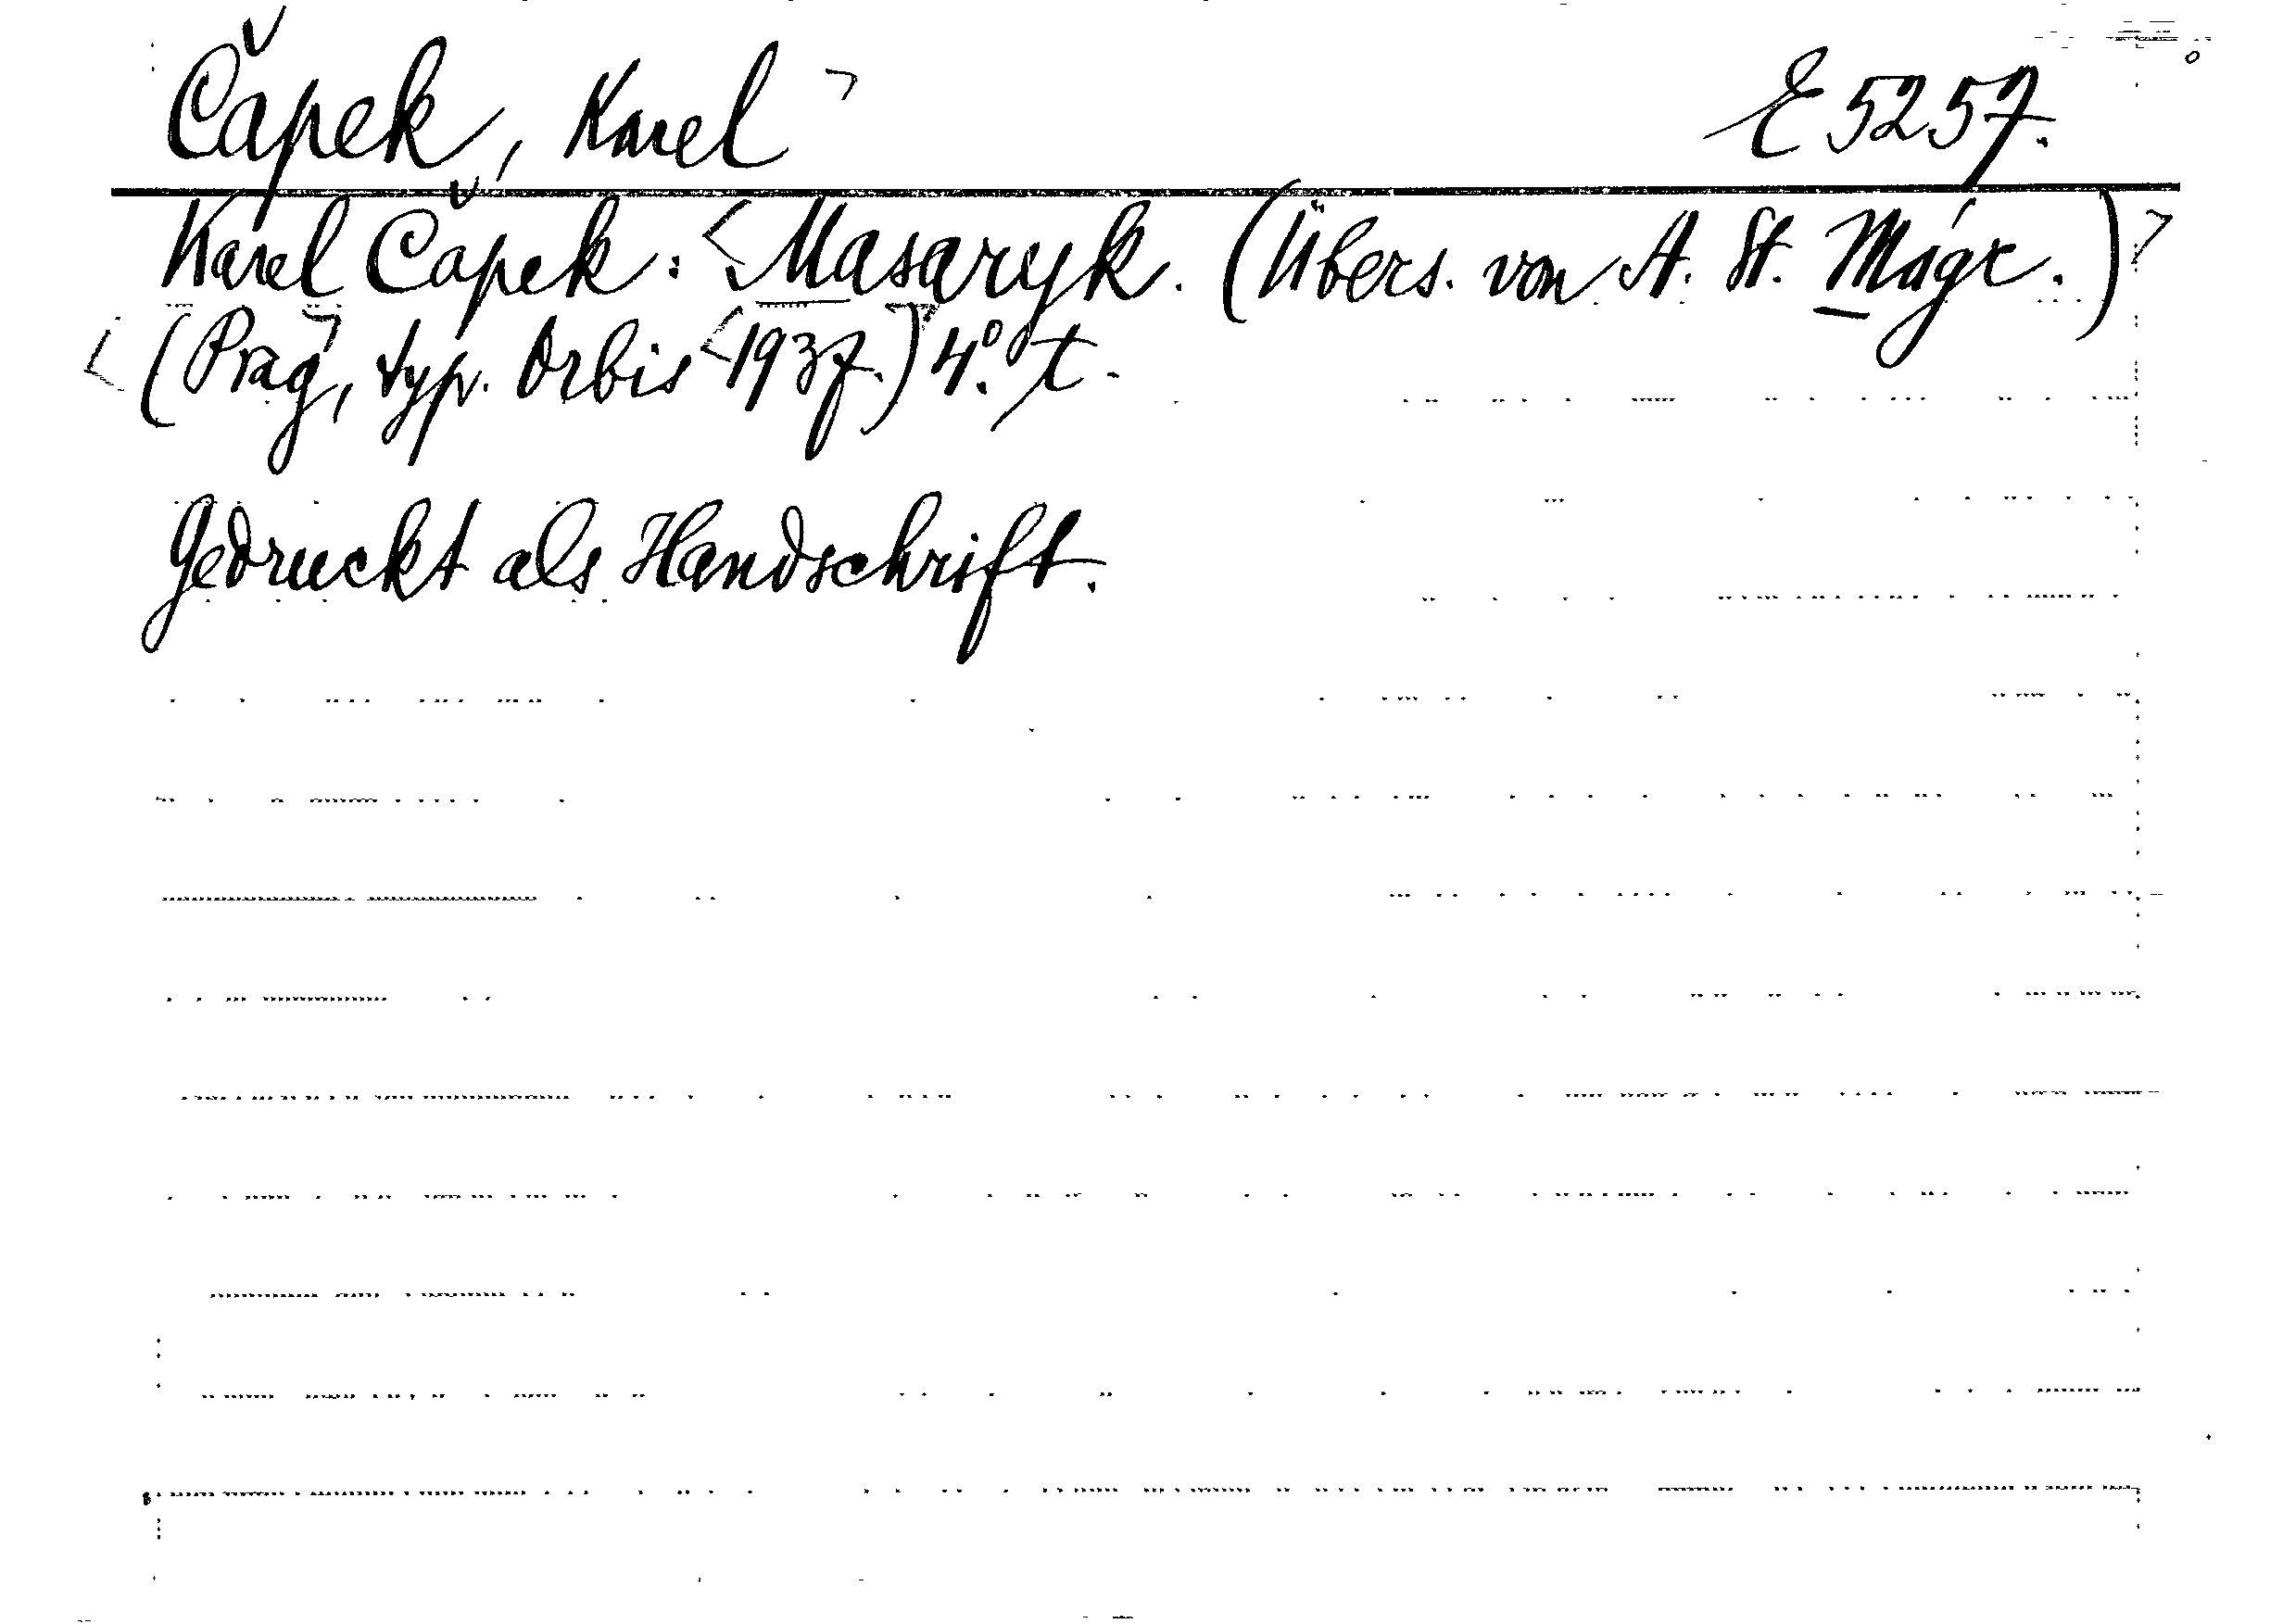 Čapek, Karel
E 5257.
Karel Čapek: Masaryk. (Übers. von A. St. Mágr.)
(Prag, typ. Orbis 1937.) 4.° t.
Gedruckt als Handschrift.